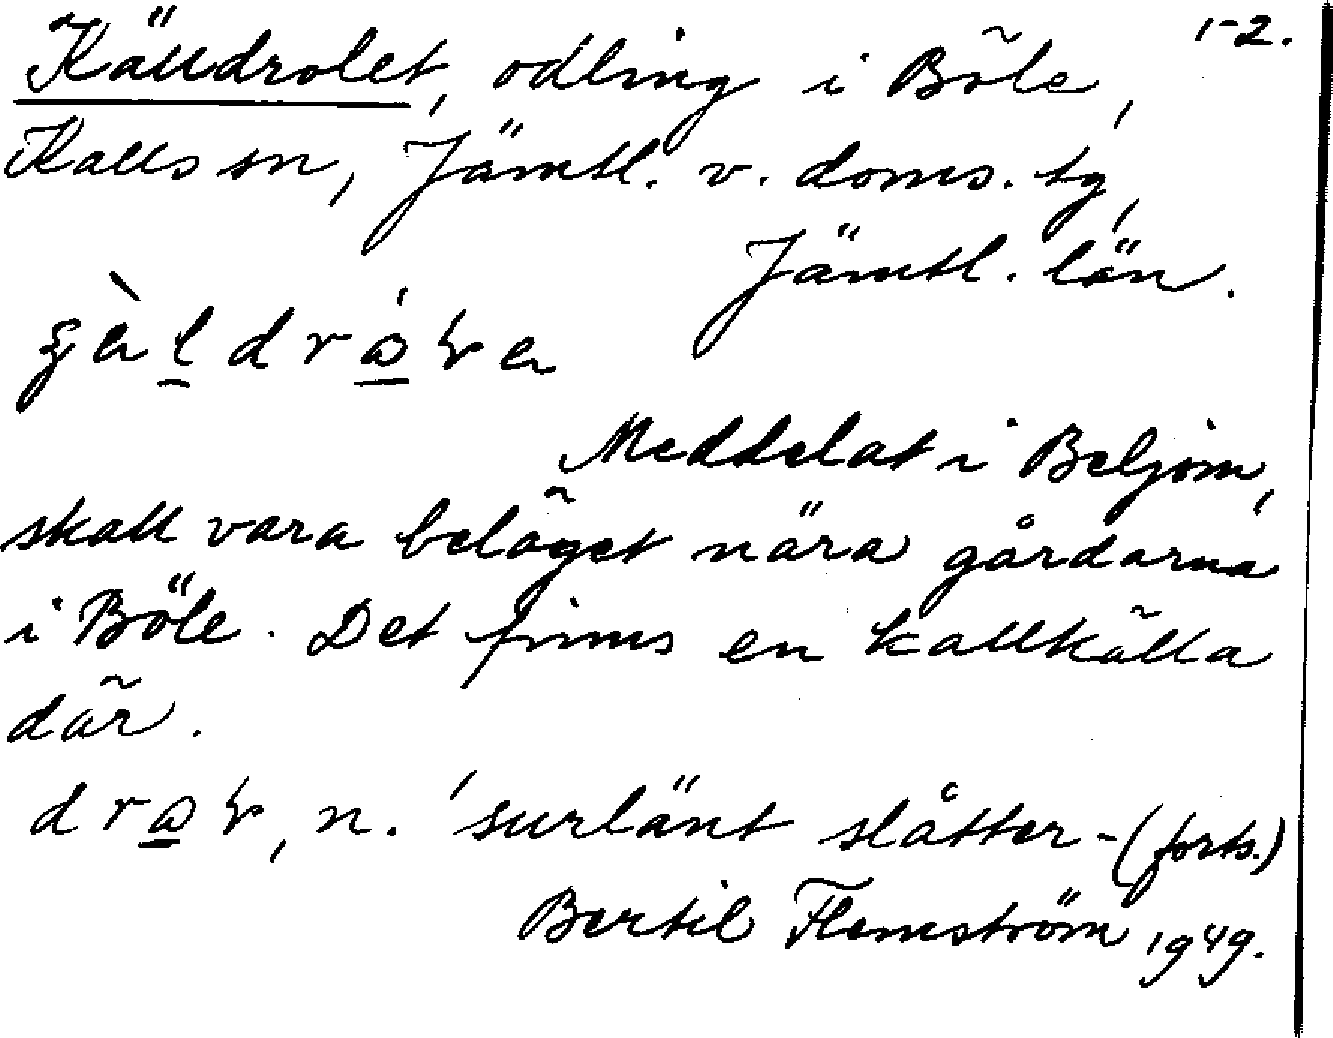 1-2.
Källdrolet, odling i Böle,
Kalls sn, Jämtl. v. doms. tg,
Jämtl. län.
Meddelat i Beljom,
skall vara beläget nära gårdarna
i Böle. Det finns en kallkälla
där.
n. 'surlänt slåtter- (forts.)
Bertil Flemström 1949.